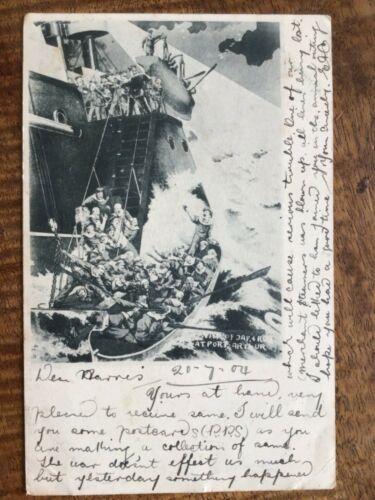 AT PORT ARTHUR
Dear Harris 20-7-04
Yours at hand, very
pleased to receive same. I will send
you some postcards (P.P.S) as you
are making a collection of same.
The war doesn't effect us much
but yesterday something happened
which will cause serious trouble one of our
merchant steamers was blown up all lives being lost.
I should liked to have joined you in the annual outing
hope you had a good time. Yours sincerely.